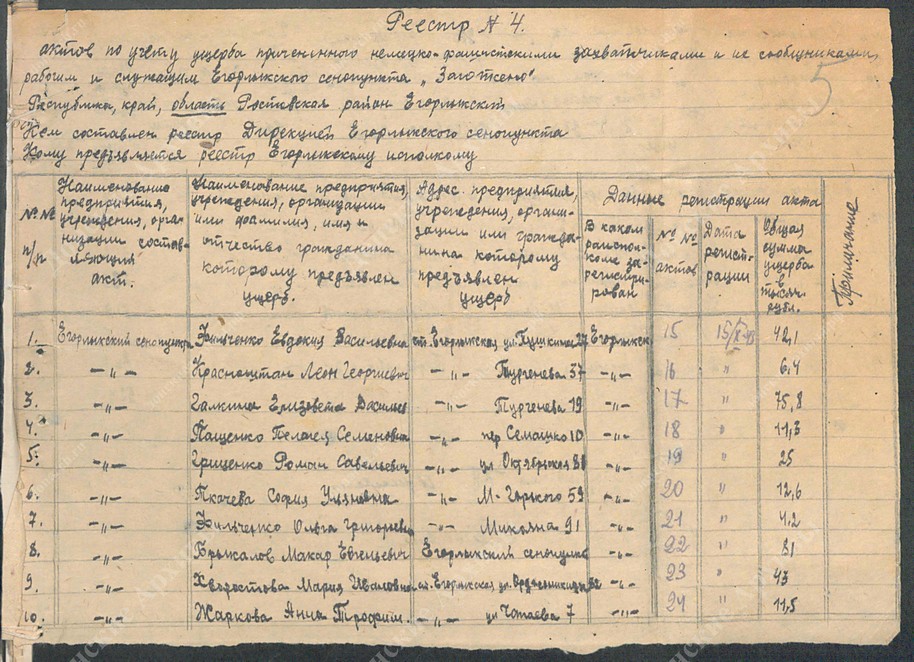 Реестр № 4.
актов по учету ущерба причененного немецко-фашистскими захватчиками и их сообщниками,
рабочим и служащим Егорлыкского сенопункта „Заготсено"
5
Республика, край, область Ростовская район Егорлыкский
Кем составлен реестр Дирекцией Егорлыкского сенопункта
Кому предъявляется реестр Егорлыкскому исполкому
№ № п/п
Наименование предприятия, учреждения, организации составляющия акт.
Наименование предприятия, учреждения, организации или фамилия, имя и отчество гражданина которому предъявлен ущерб.
Адрес. предприятия, учреждения, организации или гражданина которому предъявлен ущерб
Данные регистрации акта
В каком райисполкоме зарегистрирован
№ № актов
Дата регистрации
Общая сумма ущерба в тысяч. рубл.
Примечание
1. Егорлыкский сенопункт Фильченко Евдокия Васильевна ст. Егорлыкская ул. Пушкина 27 Егорлыкск 15 15/X-43 42,1
2. -„- Красноштан Леон Георгиевич -„- Тургенева 57 -„- 16 „ 6,4
3. -„- Галкина Елизовета Васильев -„- Тургенева 19 -„- 17 „ 75,8
4. -„- Пащенко Пелагея Семеновна -„- пер Семашко 10 -„- 18 „ 11,3
5. -„- Гриценко Роман Савельевич -„- ул Октябрьская 81 -„- 19 „ 25
6. -„- Ткачева София Ульяновна -„- М-Горького 59 -„- 20 „ 12,6
7. -„- Фильченко Ольга Григорьевна -„- Микояна 91 -„- 21 „ 4,2
8. -„- Макар Евгенцевич Егорлыкский сенопункт -„- 22 „ 81
9. -„- Хвостова Мария Ивановна ст. Егорлыкская ул. Орджоникидзе -„- 23 „ 43
10. -„- Жаркова Анна Трофим. -„- ул Чапаева 7 -„- 24 „ 11,5